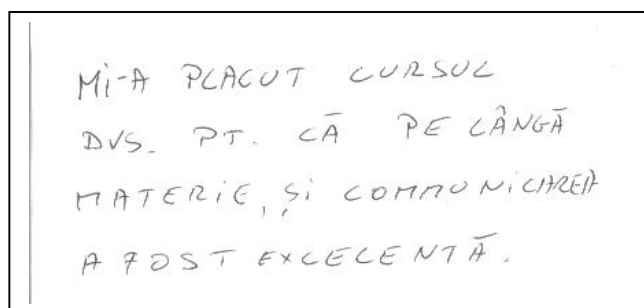 Mi-A PLACUT CURSUL
DVS. PT. CĂ PE LÂNGĂ
MATERIE, ȘI COMMUNICAREA
A FOST EXCELENTĂ.